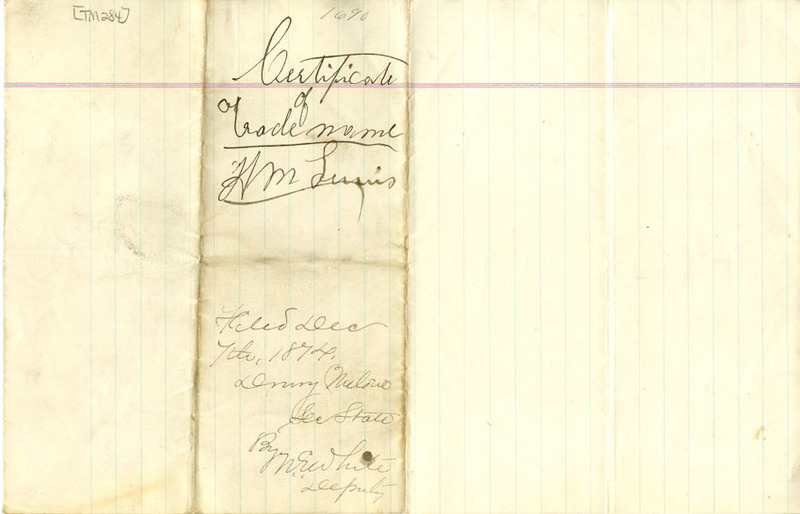 [TM284]
1690
Certificate
of
Trade name
H M Lewis
Filed Dec
7th, 1874.
Drury Melone
Sec State
By
White
Deputy